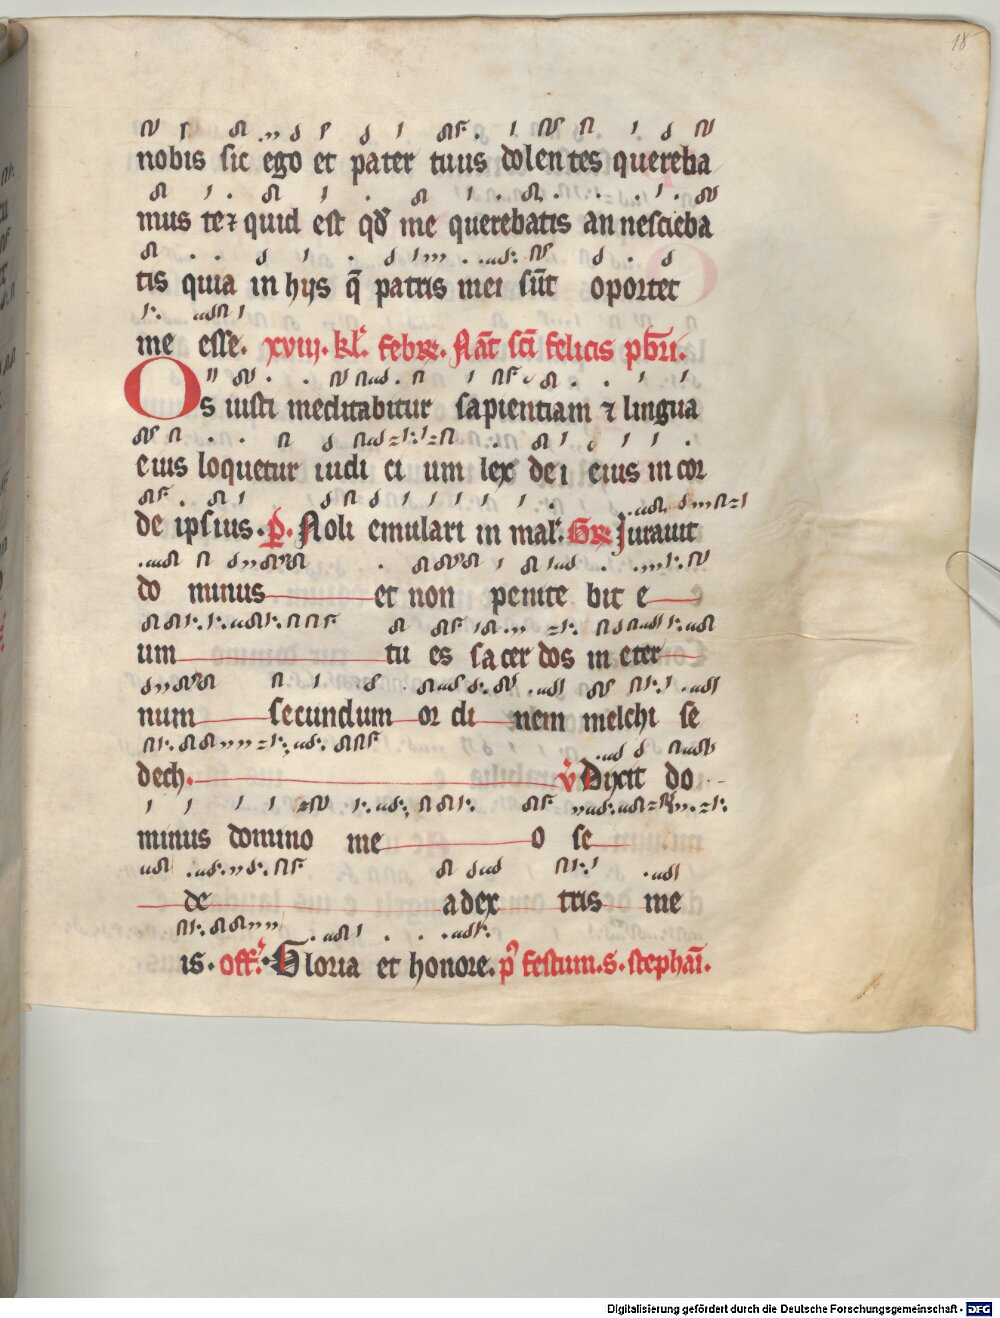 18
nobis sic ego et pater tuus dolentes quereba
mus te ⁊ quid est qđ me querebatis an nescieba
tis quia in hijs q̄ patris mei sūt oportet
me esse. xviij. kl'. febr̄. Nāt scī felicis pb̄ri.
Os iusti meditabitur sapientiam ⁊ lingua
eius loquetur iudi ci um lex dei eius in cor
de ipsius. P̄. Noli emulari in mal'. Gr̄ Jurauit
do minus et non penite bit e
um tu es sacer dos in eter
num secundum or di nem melchi se
dech. v̇ Dixit do
minus domino me o se
de adex tris me
is. off'. Gloria et honore. p' festum. s. stephāi.
Digitalisierung gefördert durch die Deutsche Forschungsgemeinschaft - DFG